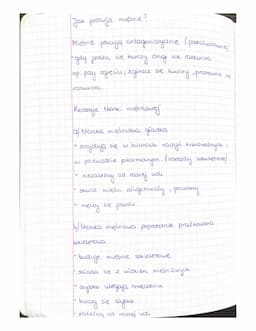 Jak pracują mięśnie?
Mięśnie pracują antagonistycznie (przeciwstawnie)
- gdy jeden się kurczy drugi się rozkurcza
np. przy zgięciu, zginacz się kurczy, prostownik się
rozkurcza.
Rodzaje tkanki mięśniowej
a) tkanka mięśniowa gładka
- znajdują się w ścianach naczyń krwionośnych i
w przewodzie pokarmowym (narządy wewnętrzne)
- niezależny od naszej woli
- skurcz mięśni długotrwały, powolny
- męczy się powoli
b) tkanka mięśniowa poprzecznie prążkowana
szkieletowa
- buduje mięśnie szkieletowe
- składa się z włókien mięśniowych
- szybko ulegają zmęczeniu
- kurczy się szybko
- zależny od naszej woli